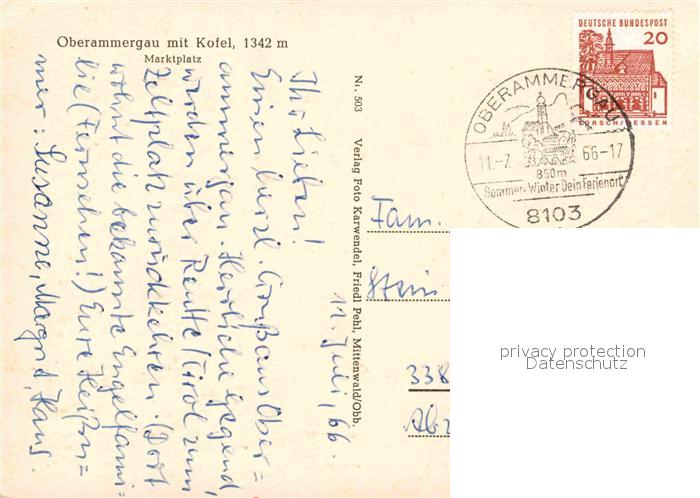 Oberammergau mit Kofel, 1342 m
Marktplatz
DEUTSCHE BUNDESPOST
20
LORSCH/HESSEN
OBERAMMERGAU
11.-7. 66-17
850m
Sommer-Winter Dein Ferienort
8103
Nr. 503 Verlag Foto Karwendel, Friedl Pehl, Mittenwald/Obb.
11. Juli, 66.
Ihr Lieben!
Einen herzl. Gruß aus Ober=
ammergau. Herrliche Gegend,
werden über Reutte/Tirol zum
Zeltplatz zurückkehren. (Dort
wohnt die bekannte Engelfami=
lie (Fernsehen!) Eure
mer: Susanne, Margrit, Hans.
Fam.
Stein
338
privacy protection
Datenschutz